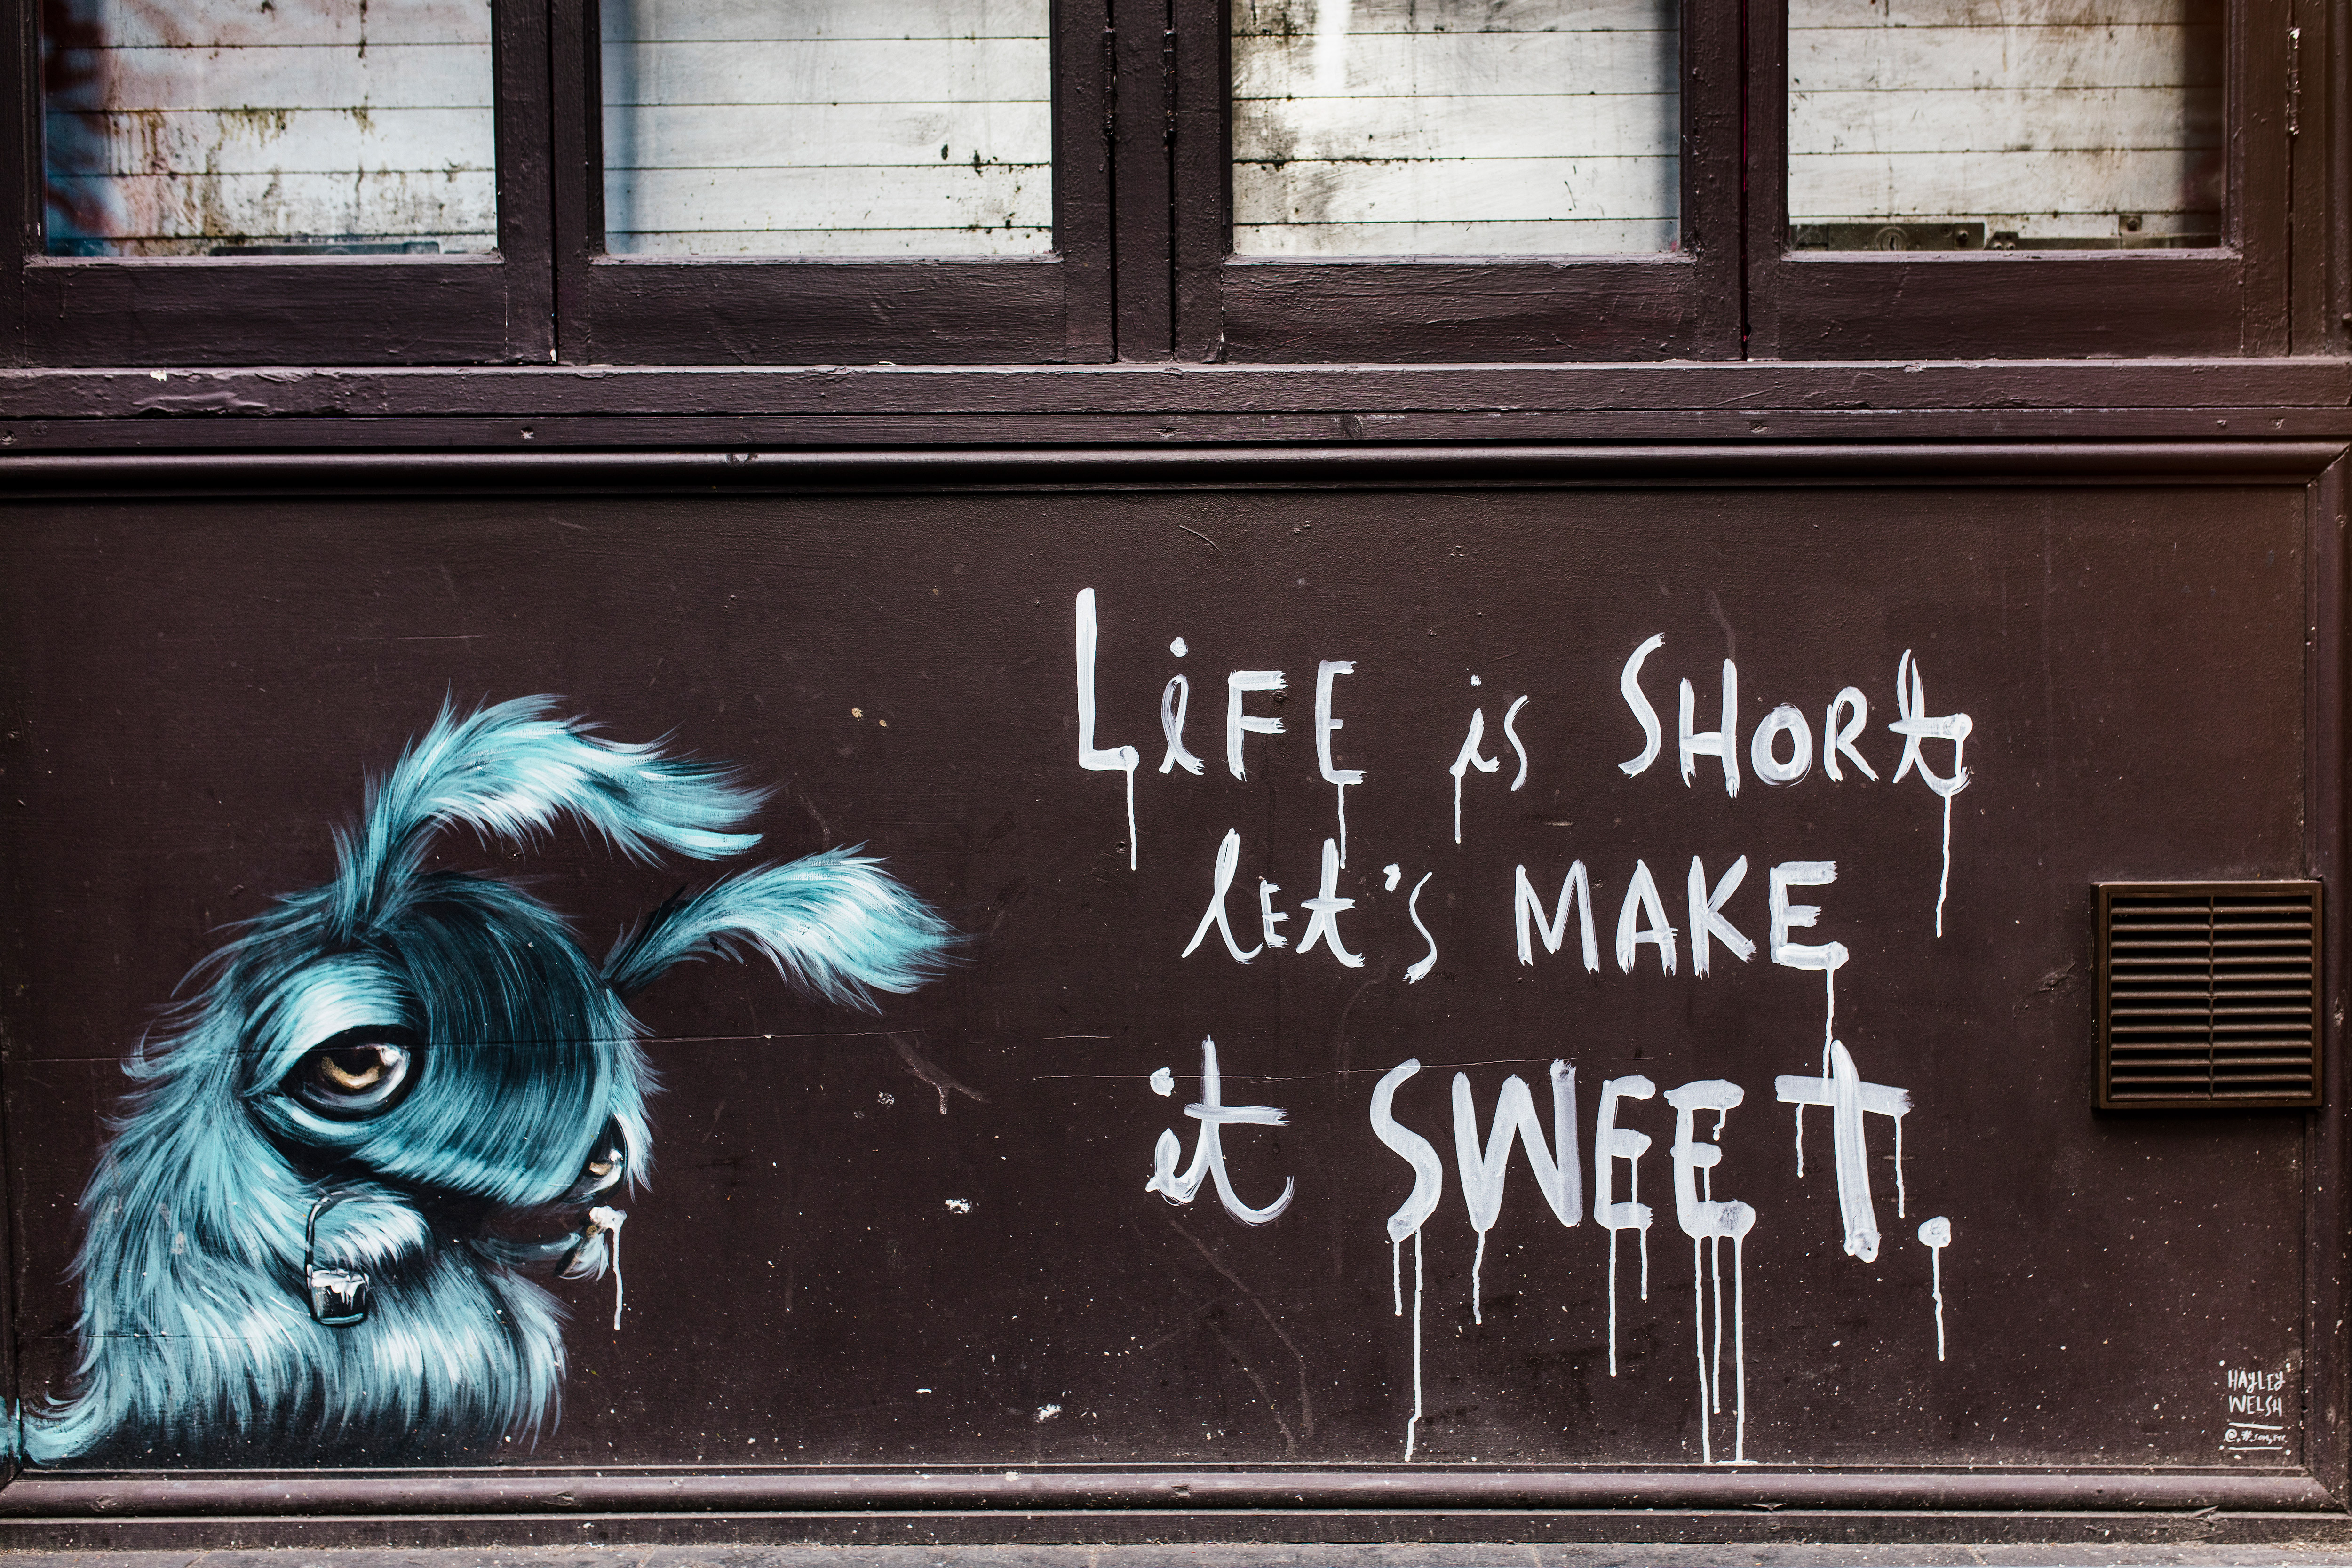 LiFE is SHORt
let's MAKE
it SWEET.
HAyLEy
WELSH